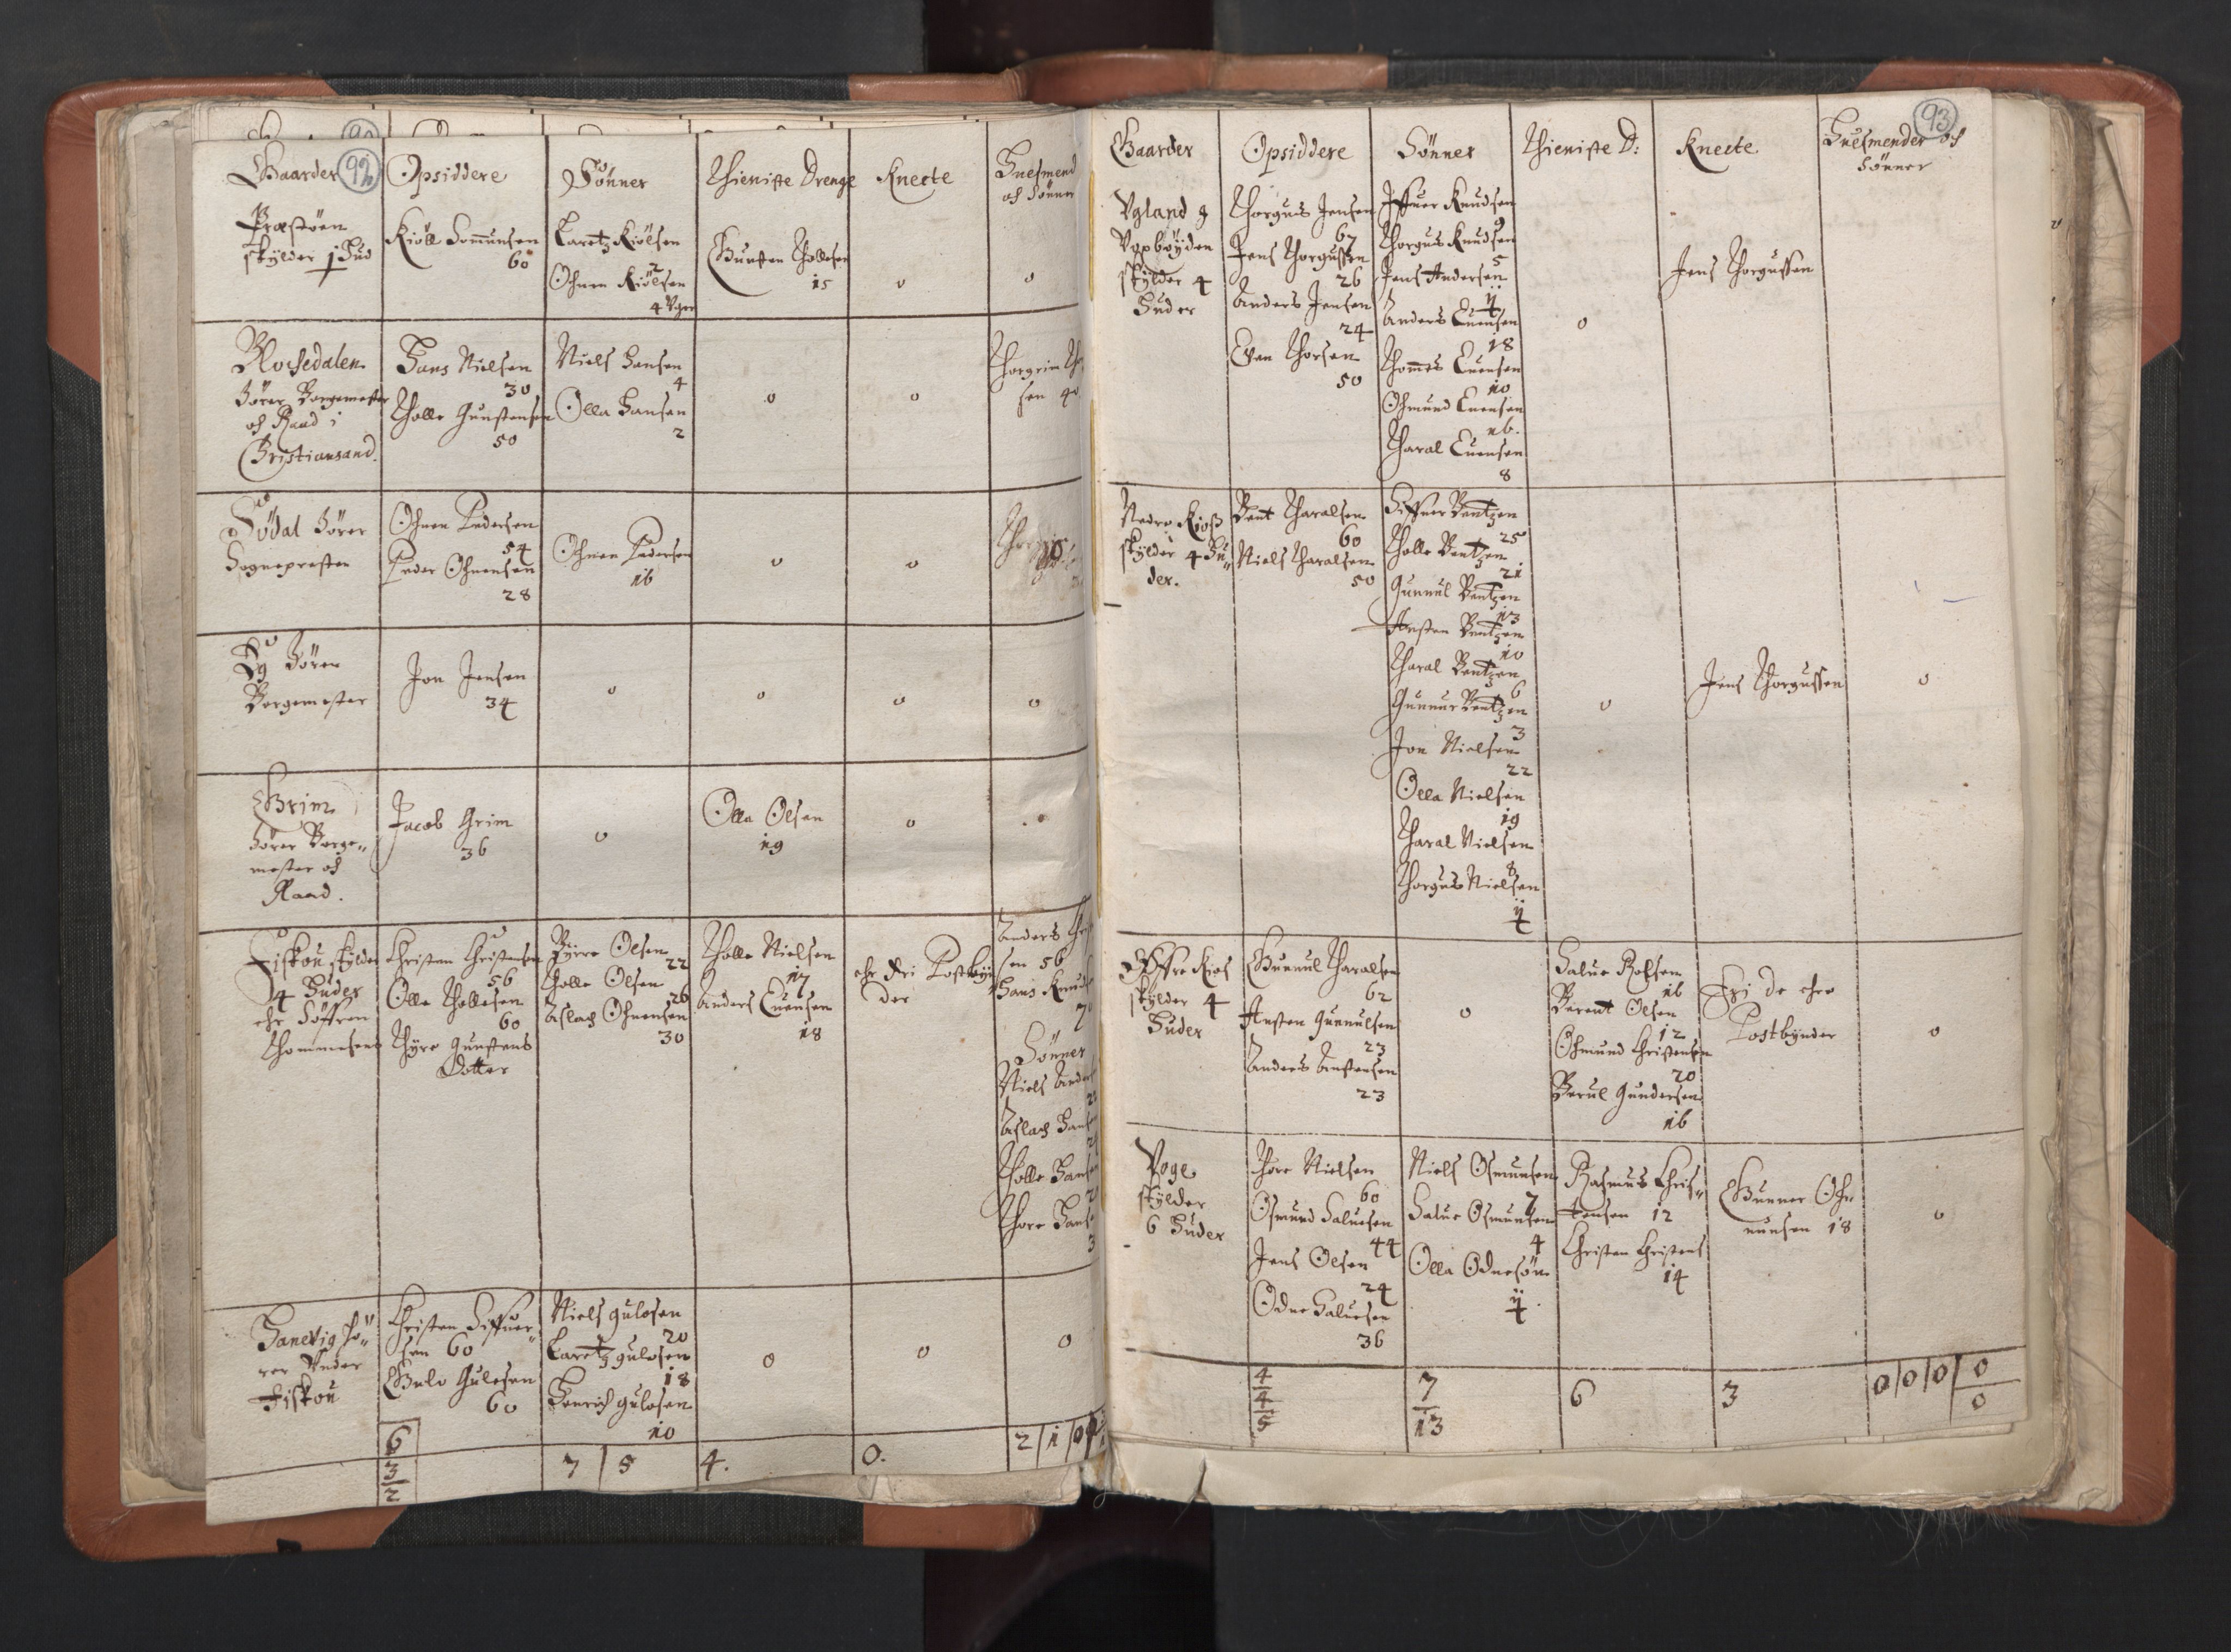 92
Gaarder
Opsiddere
Sønner
Thieniste Drenge
Knecte
Huusmend
och Sønner
Præstøen
skylder 1 Hud
Kiøll Sommunsen
60
Laretz Kiølsen
2
Ohnen Kiølsen
4 Vger
Gunsten Thollesen
15
0
0
Klochedalen
hører Borgemester
och Raad i
Christiansand.
Hans Nielsen
30
Tholle Gunstensen
50
Niels Hansen
4
Olla Hansen
2
0
0
Thorgrim
sen 40
Sødal hører
Sognepresten
Ohnen Pedersen
54
Peder Ohnensen
28
Ohnen Pedersen
16
0
0
Eg hører
Borgemester
Jon Jensen
34
0
0
0
0
Grim
hører Borge-
mester och
Raad.
Jacob Grim
36
0
Olla Olsen
19
0
0
Fiskou skylder
4 Huder
ehr Søffren
Thommesens
Christen Christensen
56
Olle Thollesen
60
Thyre Gunstens
Dotter
Byrre Olsen
22
Tholle Olsen
26
Aslach Ohnensen
30
Tholle Nielsen
17
Anders Euensen
18
ehr fri Postbyn
der
Anders
sen 56
Hans Knud
70
Sønner
Niels Ander
Aslach Hans
Tholle Hans
Thore Hans
Hanevig hø-
rer Under
Fiskou
Christen Siffuer-
sen 60
Gulo Gulosen
60
Niels Gulosen
20
Laretz Gulosen
18
Henrich Gulosen
10
0
0
0
6
3
2
7 | 5
4.
0.
2 | 1 | 0
93
Gaarder
Opsiddere
Sønner
Thieniste D:
Knecte
Huusmender och
Sønner
Vgland i
Oxbøyden
skylder 4
Huder
Thorgus Jensen
67
Jens Thorgussen
26
Anders Jensen
24
Euen Thorsen
50
Iffuer Knudsen
9
Thorgus Knudsen
5
Jens Andersen
4
Anders Euensen
18
Thommes Euensen
10
Ohmund Euensen
16.
Tharal Euensen
8
0
Jens Thorgussen
Nedre Kioss
skylder 4 Hu-
der.
Bent Tharalsen
60
Niels Tharalsen
50
Siffuer Bentzen
25
Tholle Bentzen
21
Gunnul Bentzen
13
Austen Bentzen
10
Tharal Bentzen
6
Gunnur Bentzen
3
Jon Nielsen
22
Olla Nielsen
19
Tharal Nielsen
8
Thorgus Nielsen
4
0
Jens Thorgussen
0
Øffre Kios
skylder 4
Huder
Gunnul Tharalsen
62
Austen Gunnulsen
23
Anders Austensen
23
0
Salue Rolfsen
16
Berent Olsen
12
Ohmund Christensen
20
Berul Gundersen
16
Fri de ehre
Postbynder
0
Voge
skylder
6 Huder
Thore Nielsen
60
Osmund Saluesen
44
Jens Olsen
24
Odne Saluesen
36
Niels Osmunsen
7
Salue Osmunsen
4
Olla Odnesøn
4
Rasmus Chris-
tensen 12
Christen Christens
14
Gunner Oh-
munsen 18
0
4
4
5
7
13
6
3
0 | 0 | 0 | 0
0